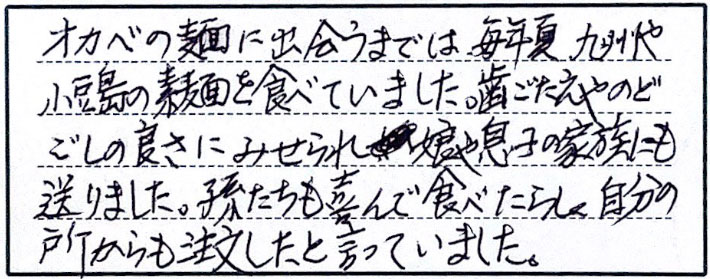 オカベの麺に出会うまでは毎年夏 九州や
小豆島の素麺を食べていました。歯ごたえやのど
ごしの良さにみせられ 娘や息子の家族にも
送りました。孫たちも喜んで食べたらしく自分の
所からも注文したと言っていました。